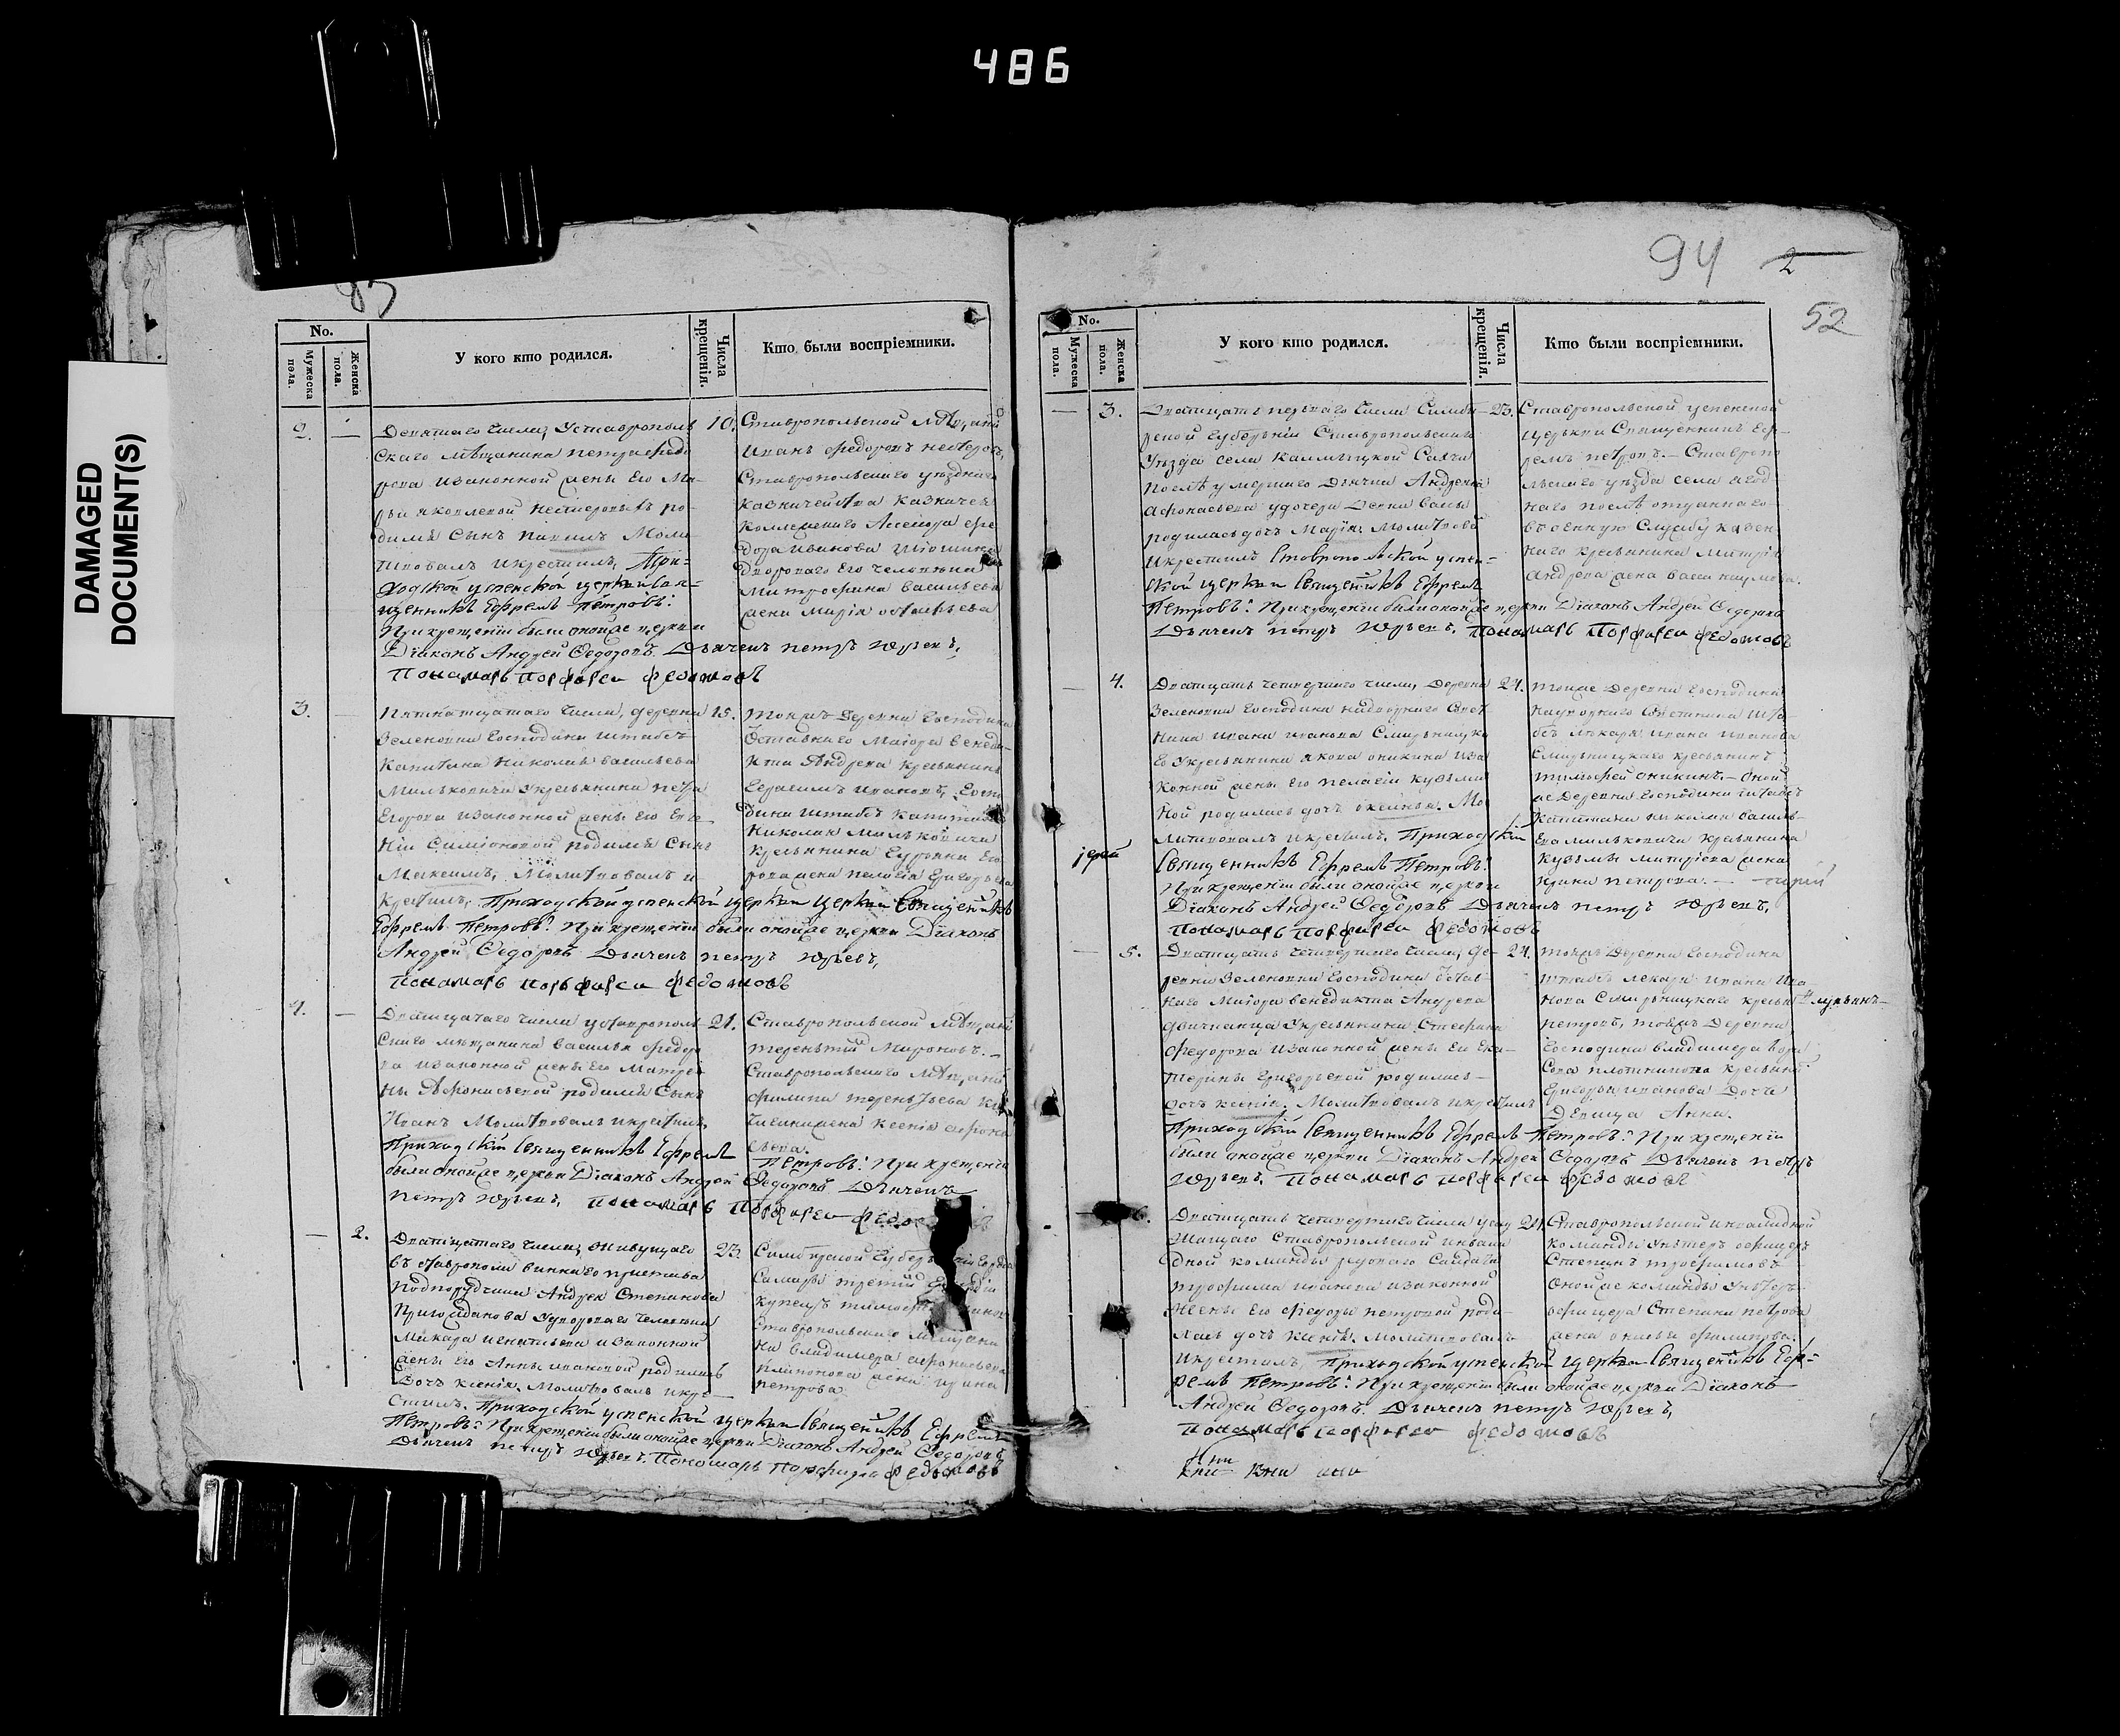 486
DAMAGED
DOCUMENT(S)
94 2
52
No.
Мужеска пола.
Женска пола.
У кого кто родился.
Числа крещенія.
Кто были воспріемники.
2. —
Девятаго числа, Уставрополь
скаго мѣщанина петра федо
рова изаконной жены его Ма-
рьи яковлевой нестеровыхъ ро-
дился сынъ павелъ Моли
твовалъ икрестилъ, При-
ходской успенской церкви свя-
щенникъ Ефремъ Петровъ:
При крещеніи были оной же церкви
Діаконъ Андрей Ѳедоровъ Дьячекъ петръ юрьевъ,
Понамарь порфирей федотовъ
10.
Ставропольской Мѣщанинъ
иванъ федоровъ нестеровъ,
Ставропольскаго уезднаго
казначейства казначея
коллежскаго Асессора фе
дора иванова
двороваго его человѣка
митрофана васильева
жена марія
3. —
Пятнатцатаго числа, деревни
Зеленовки Господина штабсъ
капитана николая васильева
Мильковича Укрестьянина петра
Егорова изаконной жены его Евге-
ніи Симіоновой родился сынъ
Максимъ, Молитвовалъ и
крестилъ, Приходской успенской церкви церкви Священникъ
Ефремъ Петровъ: При крещеніи были оной же церкви Діаконъ
Андрей Ѳедоровъ Дьячекъ петръ юрьевъ,
Понамарь порьфирей федотовъ
15.
тояжъ деревни Господина
Отставнаго Маіора венеди-
кта Андрева крестьянинъ
Герасимъ ивановъ, Госпо
дина штабсъ капитана
Николая Мильковича
крестьянина
рова жена пелагія григорьева
4. —
Дватцатаго числа уставрополь
скаго мѣщанина василья федоро
ва изаконной жены его Матре
ны Афонасьевой родился сынъ
Иванъ Молитвовалъ икрестилъ,
Приходскій священникъ Ефремъ Петровъ: При крещеніи
были оной же церкви Діаконъ Андрей Ѳедоровъ Дьячекъ
петръ юрьевъ, понамарь порфирей федо
21.
Ставропольской Мѣщанинъ
терентій Мироновъ.—
Ставропольскаго Мѣщанина
филипа терентьева
жена ксенія афона
сьева.
— 2.
Дватцатаго числа, живущаго
въ ставрополи виннаго пристава
подпорудчика Андрея Степанова
Удвороваго человѣка
Макара игнатьева изаконной
жены его Анны ивановой родилась
дочь ксенія. Молитвовалъ икре-
стилъ. Приходской успенской церкви Священникъ Ефремъ
Петровъ: При крещеніи были оной же церкви Діаконъ Андрей Ѳедоровъ
Дьячекъ петръ юрьевъ. Пономарь Порфирей федотовъ
23.
Симбирской Губер
Самары третей
купецъ тимофей
Ставропольскаго мещани
на владимера афонасьева
жена ирина
петрова
No.
Мужеска пола.
Женска пола.
У кого кто родился.
Числа крещенія.
Кто были воспріемники.
— 3.
Дватцать перваго числа Симби-
рской Губерьніи Ставропольскаго
Уѣзда села калмыцкой
послѣ умершаго Дьячка Андрея
Афонасьева удочери
родилась дочь Марія. Молитвовалъ
икрестилъ Ставропольской успен-
ской церкви Священникъ Ефремъ
Петровъ: При крещеніи были оной же церкви Діаконъ Андрей Ѳедоровъ
Дьячекъ петръ юрьевъ. понамарь Порфирей федотовъ
23.
Ставропольской успенской
церькви Священникъ Еф-
ремъ петровъ.— Ставропо
льскаго уѣзда села ягод
наго послѣ отданнаго
въ военную службу казен
наго крестьянина Митрія
Андрева жена
— 4.
Дватцать четвертаго числа, Деревни
Зеленовки Господина надворнаго совет
ника ивана иванова Смирьницка
го Укрестьянина якова аникина иза
конной жены его пелагіи кузьми
ной родилась дочь Мо
литвовалъ икрестилъ. Приходскій
іерей
Священникъ Ефремъ Петровъ:
При крещеніи были оной же церкви
Діаконъ Андрей Ѳедоровъ Дьячекъ петръ юрьевъ,
понамарь порфирей федотовъ
24.
тояже деревни Господина
надворнаго советника шта
бсъ лекаря ивана иванова
Смирьницкаго крестьянинъ
тимофей аникинъ.— оной
же деревни Господина штабсъ
капитана николая василь-
ева мильковича крестьянина
кузьмы митріева жена
ирина петрова.—
— 5.
Дватцать четвертаго числа, де-
ревни Зеленовки Господина Отстав
наго Маіора венедикта Андрева
Укрестьянина Стефана
федорова изаконной жены его Ека-
терины Григорьевой родилась
дочь ксенія. Молитвовалъ икрестилъ
Приходскій Священникъ Ефремъ Петровъ: При крещеніи
были оной же церкви Діаконъ Андрей Ѳедоровъ Дьячекъ петръ
юрьевъ. понамарь порфирей федотовъ
24.
тояжъ деревни Господина
штабъ лекаря ивана ива
нова Смирьницкаго
петровъ, тояжъ деревни
Господина владимера
крестьян
Григорья иванова дочь
девица Анна.
6.
Дватцать четвертаго числа
Ставропольской инвали
дной команды рядоваго Салдата
трофима иванова изаконной
жены его федоры петровой роди-
лась дочь ксенія. молитвовалъ
икрестилъ, Приходской успенской церкви Священникъ Еф-
ремъ Петровъ: При крещеніи были оной же церкви Діаконъ
Андрей Ѳедоровъ. Дьячекъ петръ юрьевъ,
понамарь порфирей федотовъ
24.
Ставропольской инвалидной
команды Унтеръ офицеръ
Степанъ трофимовъ
оной же команды Унтеръ
офицера Степана петрова
жена филипова.